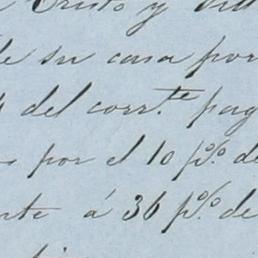 Cristo y
de su casa por
del corr.te pag
por el 10 p%. de
á 36 p%. de